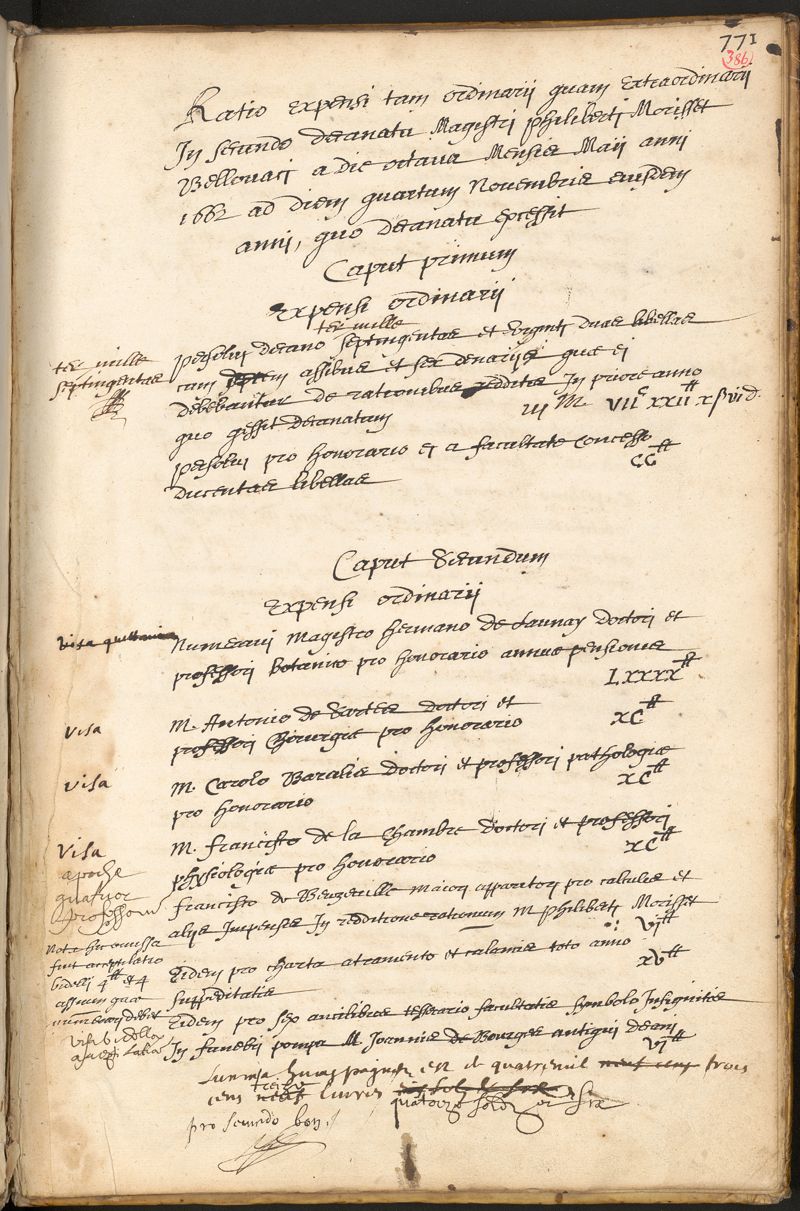 771
386
Ratio expensi tam ordinarij quam extraordinarij
In secundo decanatu Magistri philiberti Morisset
Bellovaci a die octava Mensis Maij anni
1662 ad diem quartam Novembris eiusdem
anni, quo decanatu excessit
Caput primum
Expensi ordinarij
ter mille
ter mille
septingentas
persolvi decano septingentas et viginti duas libellas
cum septem assibus et sex denarijs quæ ei
debebantur de rationibus redditis In priore anno
quo gessit decanatum iij M. VIIc XXII tt X ß VI d.
persolvi pro honorario ei a facultate concesso
ducentas libellas CC tt
Caput Secundum
Expensi ordinarij
Visa quittancia
Numeravi Magistro Hermano de Launay doctori et
professori botanico pro honorario annuæ pensionis
LXXXX tt
Visa
M. Antonio de Sartes doctori et
professori Chirurgiæ pro honorario XC tt
Visa
M. Carolo Baralis doctori et professori pathologiæ
pro honorario XC tt
Visa
M. francisco de la Chambre doctori et professori
physiologiæ pro honorario XC tt
apoche
quatuor
professorum
francisco de Beuzeville maiori apparitori pro calculis et
alijs Impensis In redditione rationum M. philiberti Morisset
VI tt
Nota hic omissa
fuit acceptilatio
bidelli 4 tt et 4
assium quæ
numerari debet
Eidem pro charta atramento et calamis toto anno
suppeditatis XV tt
Eidem pro sex ancilibus tesserario facultatis symbolo Insignitis
In funebri pompa M. Joannis de Bourges antiqui decani
VI tt
Summa huius paginæ est de quatre mil neuf cens trois
cens neuf treize livres
quatorze solz et six
pro secundo bon.